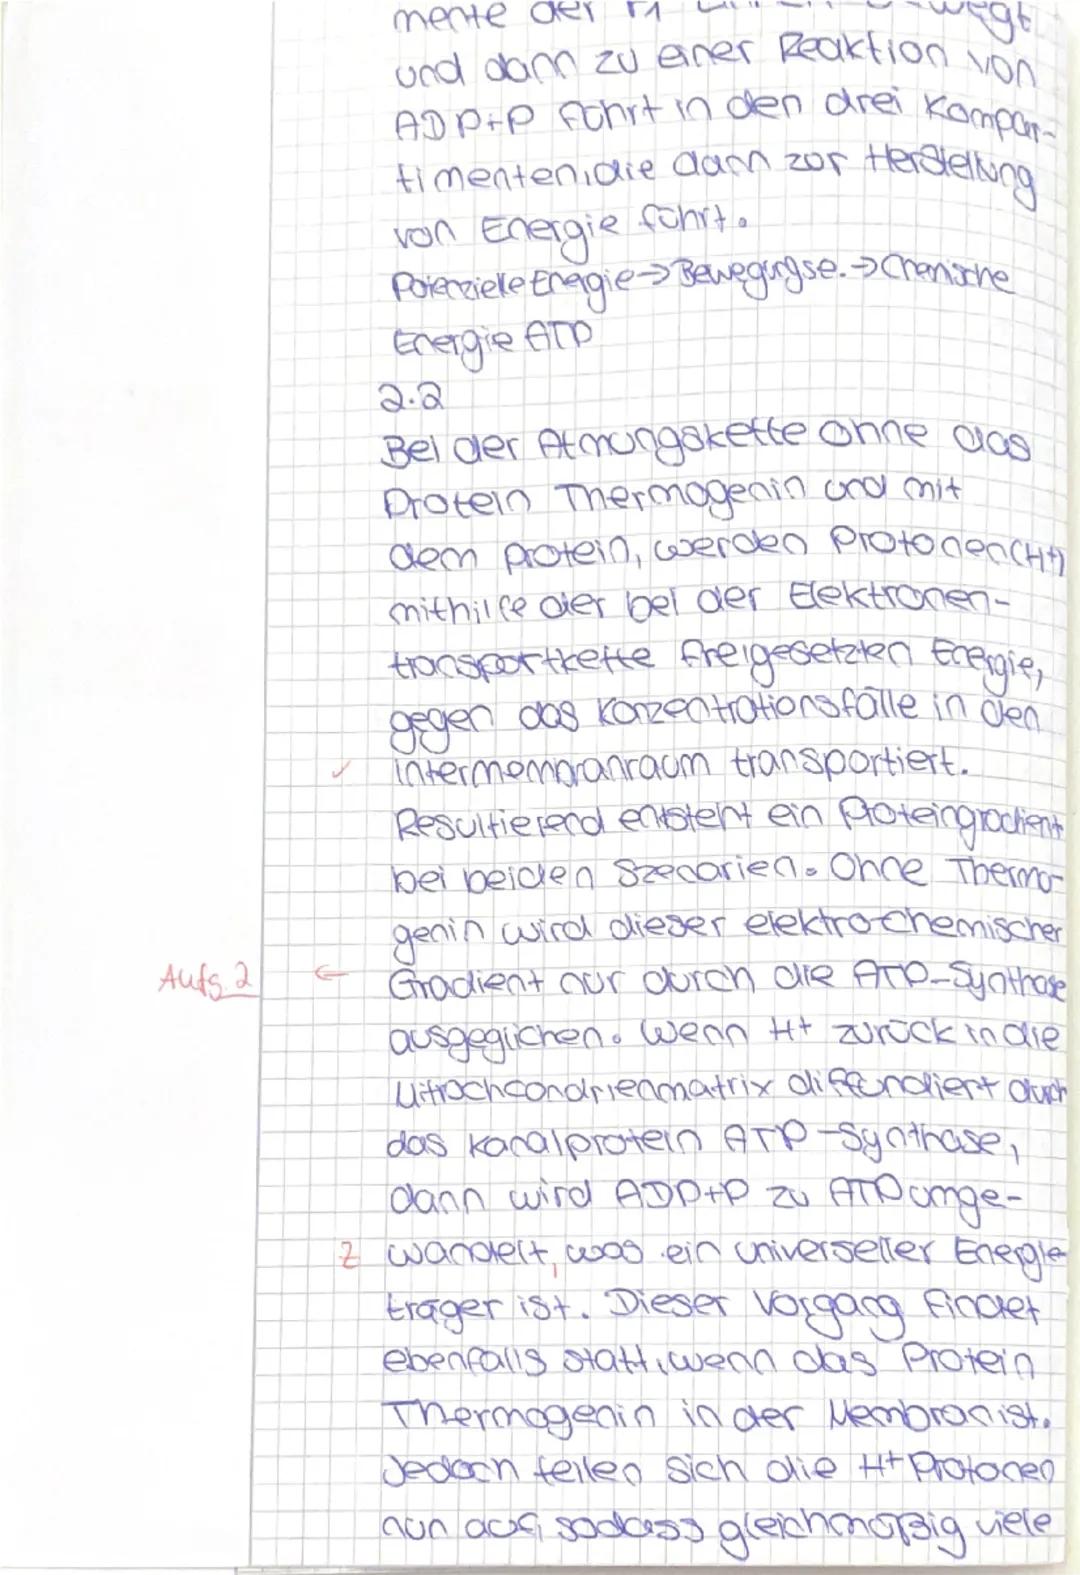 mente der F1
und dann zu einer Reaktion von
ADP+P führt in den drei Kompar-
timenten, die dann zur Herstellung
von Energie führt.
Potenzielle Energie → Bewegungse. → Chemische
Energie ATP
2.2
Bei der Atmungskette ohne das
Protein Thermogenin und mit
dem protein, werden Protonen (H+)
mithilfe der bei der Elektronen-
transportkette freigesetzten Energie,
gegen das Konzentrationsfälle in den
✓ intermembranraum transportiert.
Resultierend entsteht ein Proteingradient
bei beiden Szenarien. Ohne Thermo-
genin wird dieser elektrochemischer
Aufg. 2 ← Gradient nur durch die ATP-Synthase
ausgeglichen. Wenn H+ zurück in die
Mitrochcondrienmatrix diffundiert durch
das Kanalprotein ATP-Synthase,
dann wird ADP+P zu ATP umge-
Z wandelt, was ein universeller Energie
träger ist. Dieser Vorgang findet
ebenfalls statt, wenn das Protein
Thermogenin in der Membran ist.
Jedoch teilen sich die H+ Protonen
nun auf, sodass gleichmäßig viele